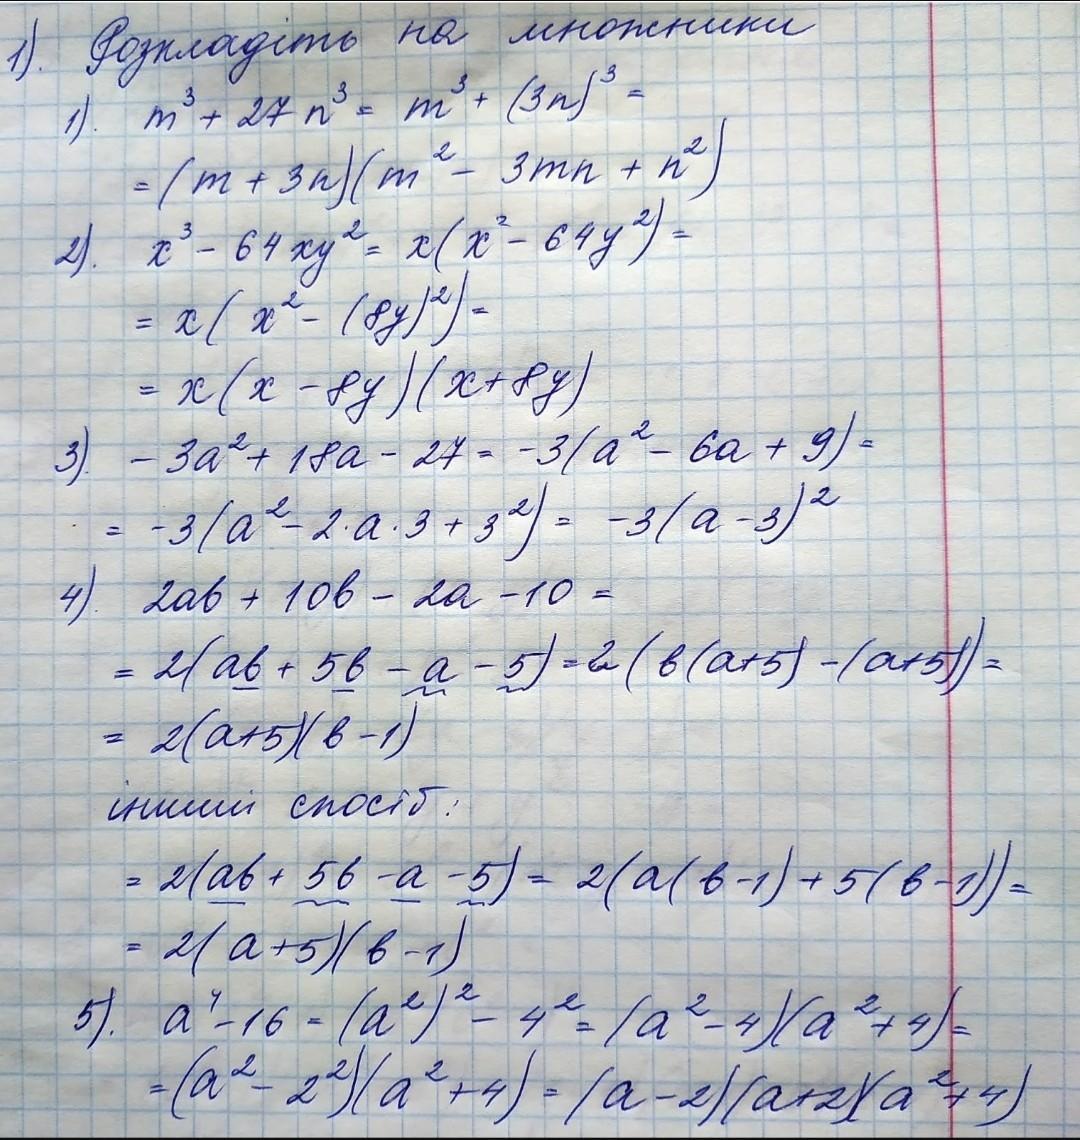 1). Розкладіть на множники
1). m³ + 27n³ = m³ + (3n)³ =
= (m + 3n)(m² - 3mn + n²)
2). x³ - 64xy² = x(x² - 64y²) =
= x(x² - (8y)²) =
= x(x - 8y)(x + 8y)
3). - 3a² + 18a - 27 = -3(a² - 6a + 9) =
= -3(a² - 2·a·3 + 3²) = -3(a - 3)²
4). 2ab + 10b - 2a - 10 =
= 2(ab + 5b - a - 5) = 2(b(a+5) - (a+5)) =
= 2(a+5)(b - 1)
інший спосіб:
= 2(ab + 5b - a - 5) = 2(a(b - 1) + 5(b - 1)) =
= 2(a + 5)(b - 1)
5). a⁴ - 16 = (a²)² - 4² = (a² - 4)(a² + 4) =
= (a² - 2²)(a² + 4) = (a - 2)(a + 2)(a² + 4)